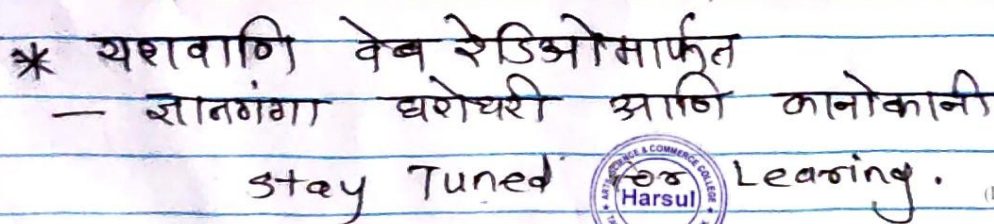 * यशवाणि वेब रेडिओमार्फत
— ज्ञानगंगा घरोघरी आणि कानोकानी
Stay Tuned for Learing.
SCIENCE & COMMERCE COLLEGE
Harsul